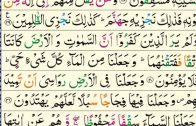 فَذٰلِكَ نَجْزِيْهِ جَهَنَّمَ ؕ كَذٰلِكَ نَجْزِي الظّٰلِمِيْنَ
يَرَ الَّذِيْنَ كَفَرُوْٓا اَنَّ السَّمٰوٰتِ وَالْاَرْضَ كَانَتَا
فَفَتَقْنٰهُمَا ؕ وَجَعَلْنَا مِنَ الْمَآءِ كُلَّ شَيْءٍ حَيٍّ ؕ
وَجَعَلْنَا فِي الْاَرْضِ رَوَاسِيَ اَنْ تَمِيْدَ
وَجَعَلْنَا فِيْهَا فِجَاجًا سُبُلًا لَّعَلَّهُمْ يَهْتَدُوْنَ